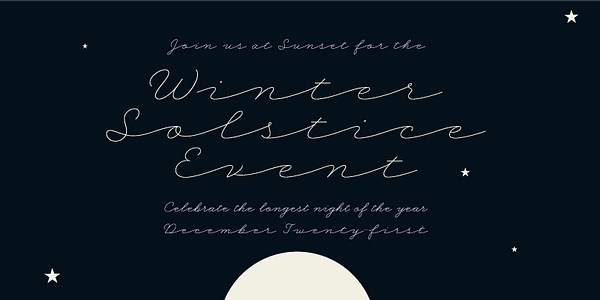 Join us at Sunset for the
Winter
Solstice
Event
Celebrate the longest night of the year
December Twenty-first